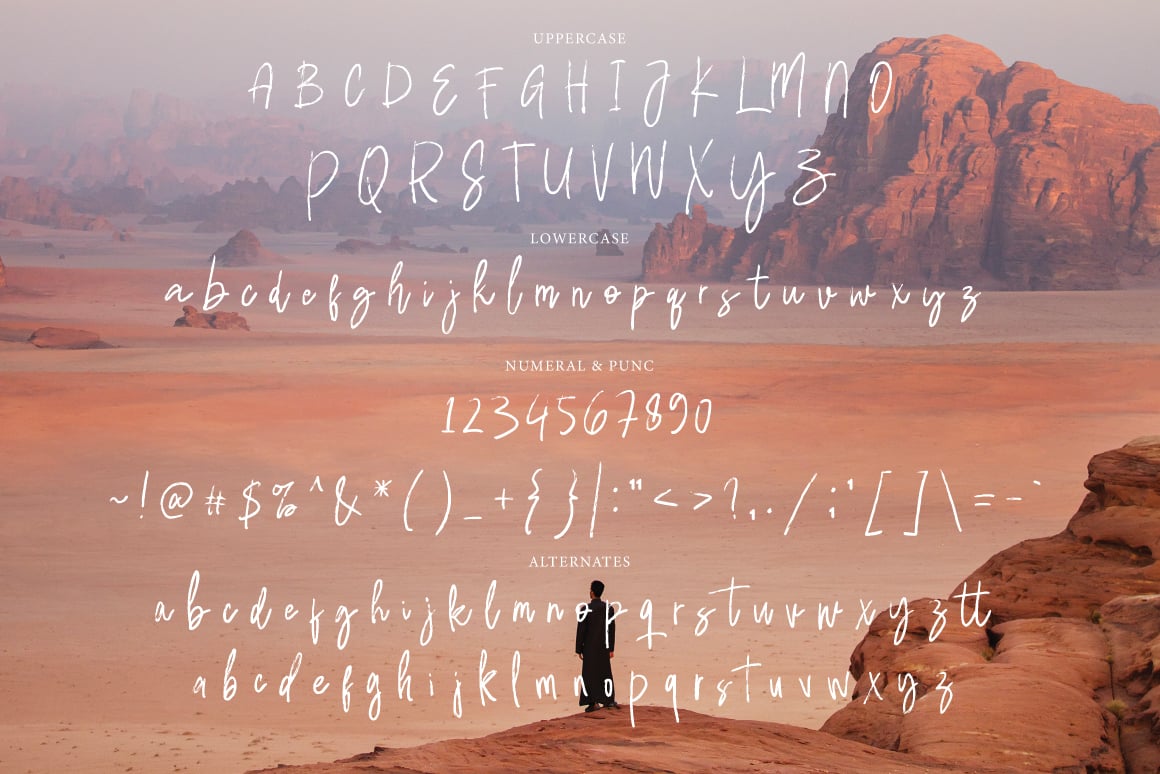 UPPERCASE
A B C D E F G H I J K L M N O
P Q R S T U V W X Y Z
LOWERCASE
a b c d e f g h i j k l m n o p q r s t u v w x y z
NUMERAL & PUNC
1 2 3 4 5 6 7 8 9 0
~ ! @ # $ % ^ & * ( ) _ + { } | : " < > ? , . / ; ' [ ] \ = - `
ALTERNATES
a b c d e f g h i j k l m n o p q r s t u v w x y z tt
a b c d e f g h i j k l m n o p q r s t u v w x y z